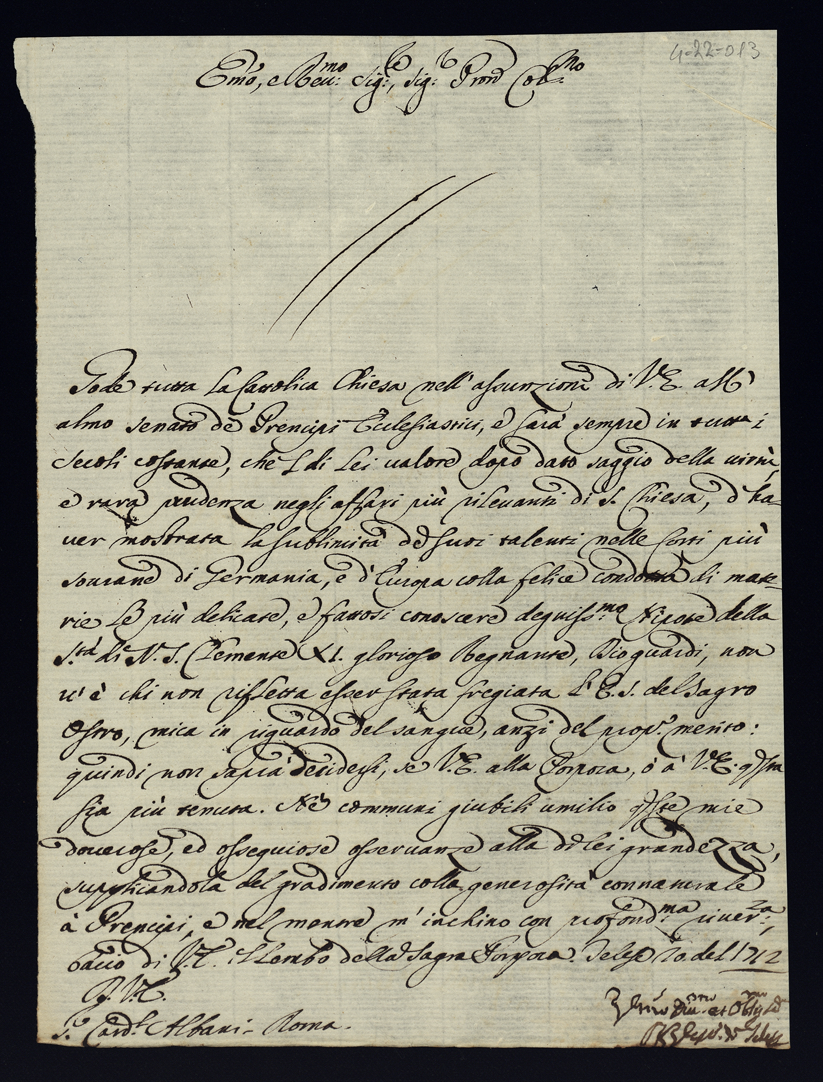 4-22-013
Em̃o, e Reu:mo Sig:re, Sig:r Pron̄ Col:mo
Gode tutta la Cattolica Chiesa nell'assunzione di V.E. all'
almo senato de Prencipi Ecclesiastici, e sarà sempre in tutti i
secoli costante, che l di Lei valore dopo dato saggio della virtù,
e rara prudenza negli affari più rileuanti di S. Chiesa, d'ha-
uer mostrata la sublimità de suoi talenti nelle Corti più
sourane di Germania, e d'Europa colla felice condotta di mate-
rie le più delicate, e fattosi conoscere degniss:mo Nipote della
S.tà di N. S. Clemente XI. glorioso Regnante, Dio guardi, non
u'è chi non rifletta esser stata fregiata l'E.S. del Sagro
Ostro, mica in riguardo del sangue, anzi del prop.o merito:
quindi non saprà decidersi, se V.E. alla Porpora, ò à V.E. q̃sta
sia più tenuta. Nè communi giubili umilio q̃ste mie
douerose, ed ossequiose osseruanze alla di lei grandezza,
supplicandola del gradimento colla generosità connaturale
à Prencipi, e nel mentre m'inchino con profond:ma riuer:za,
bacio di V.E. il lembo della Sagra Porpora. Telese 20 del 1712
D. V.E.
S. Card.l Albani - Roma.